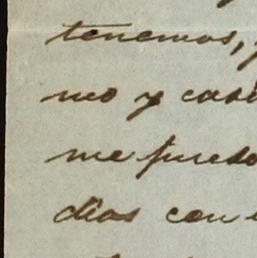 tenemos,
mo y casi
me puedo
dias con